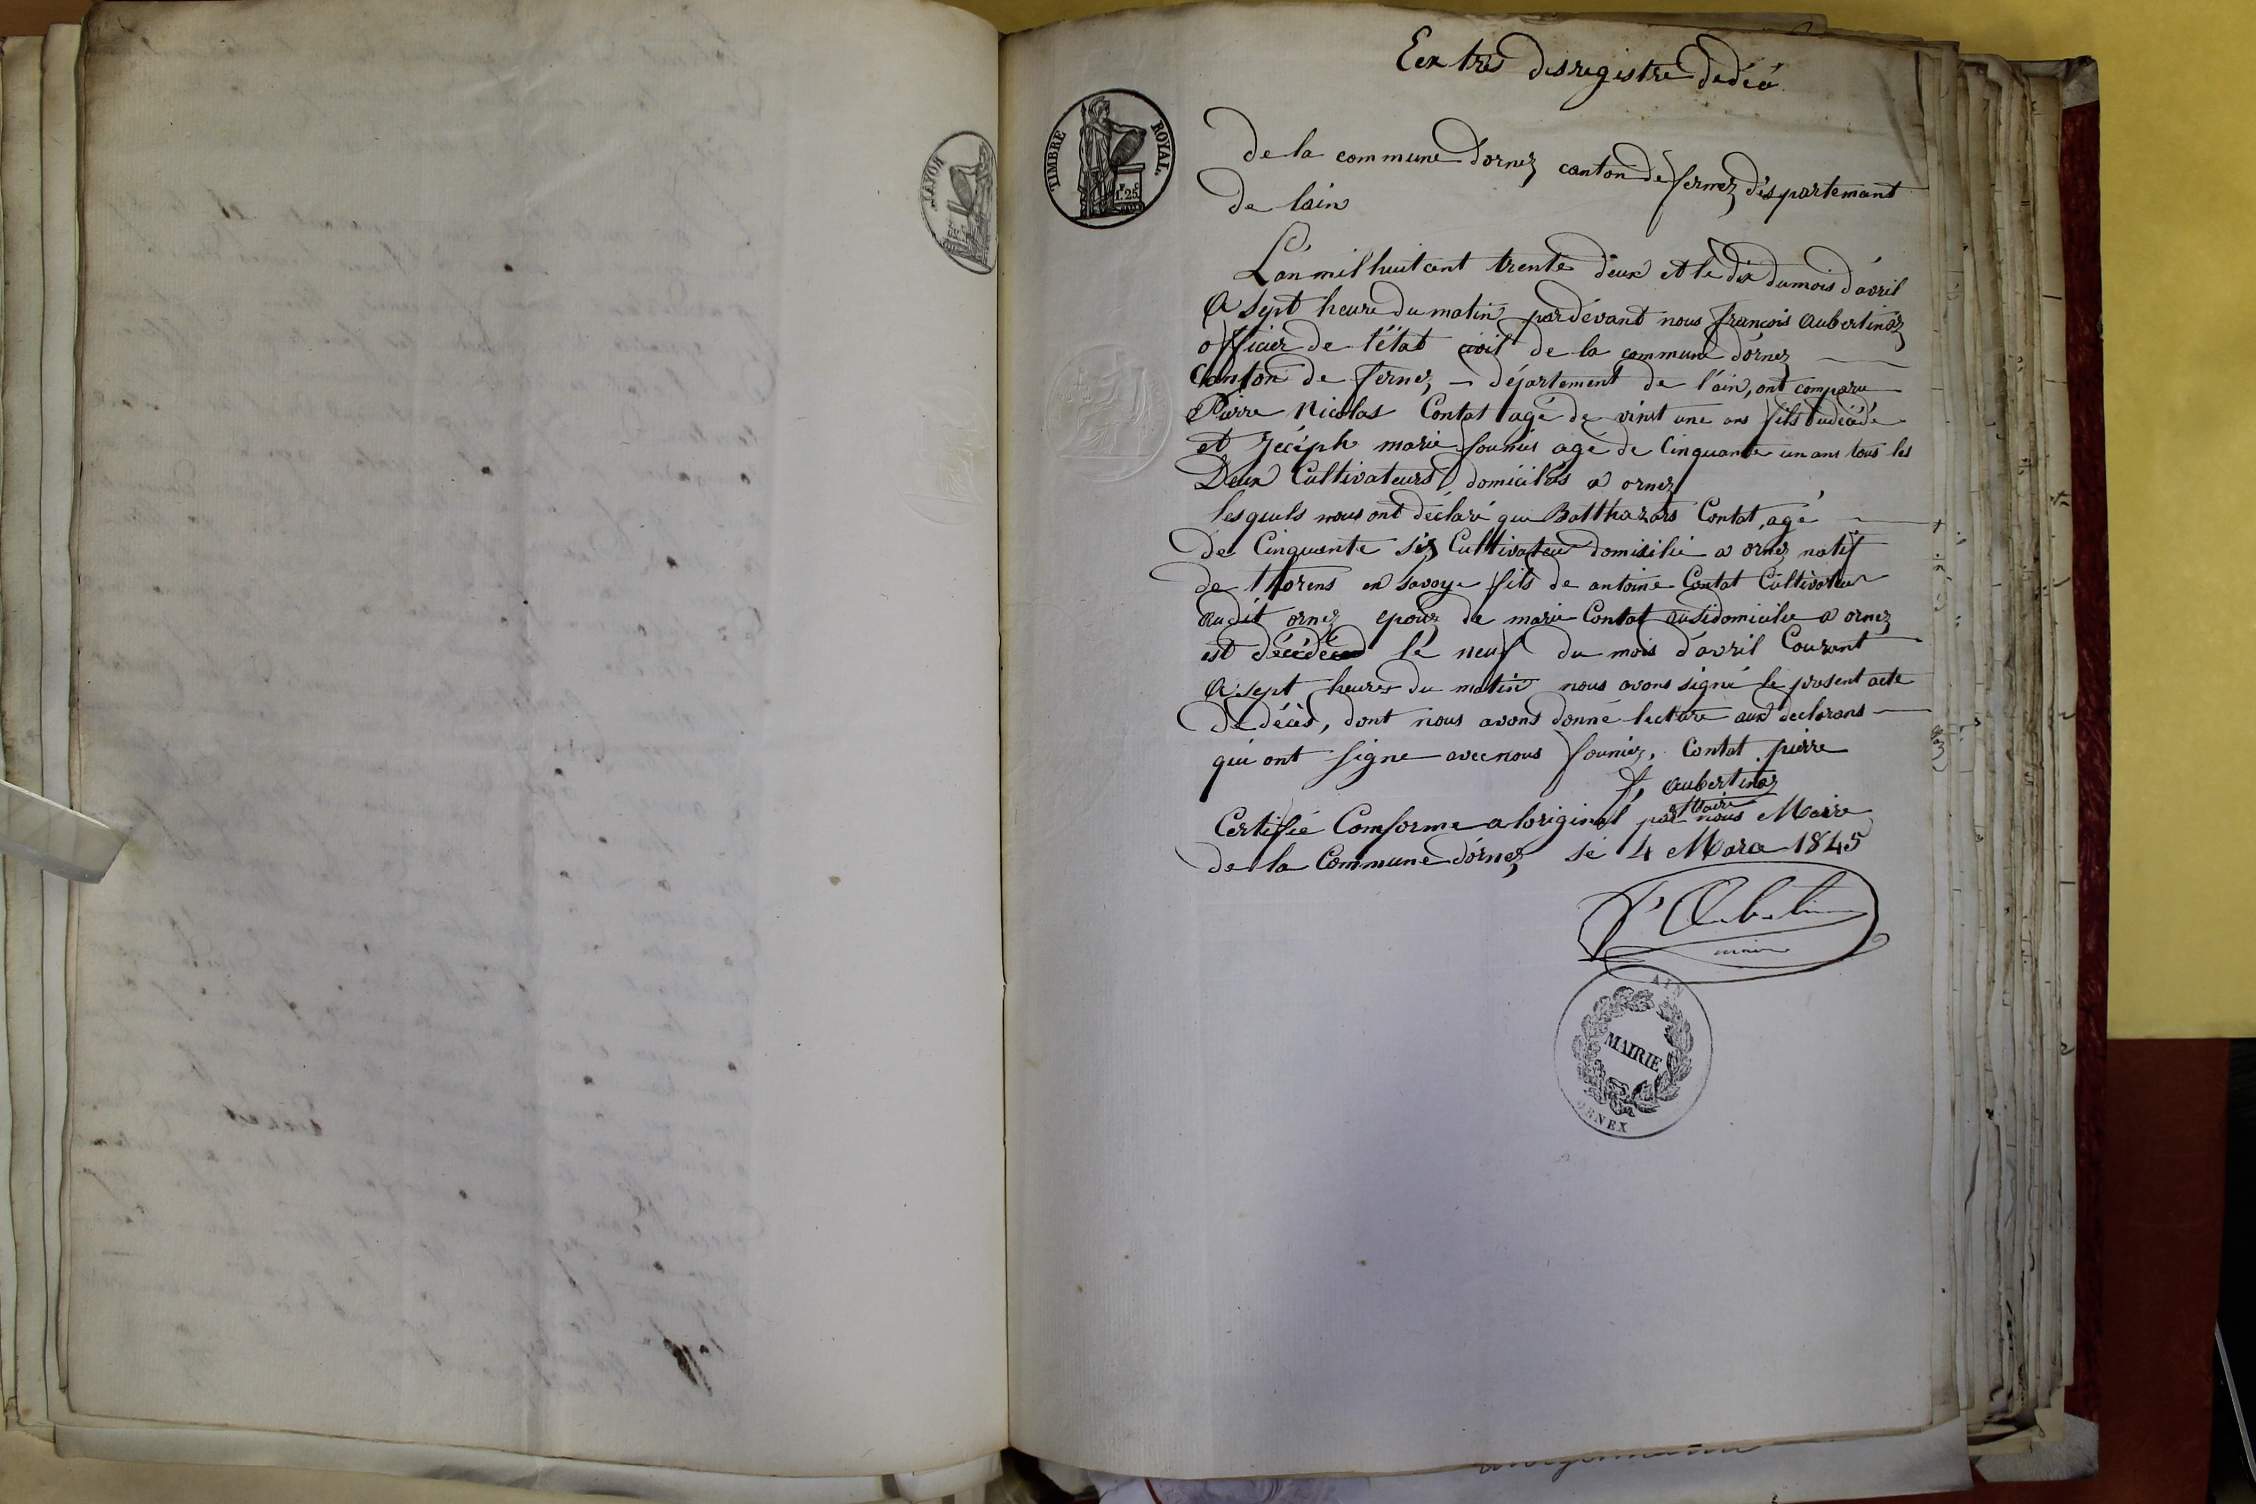 Eextres des registre dedéce
TIMBRE ROYAL
1.25
de la commune dornez canton de fernez dèspartemant
de lain
L'an mil huit cent trente deux et le dix du mois d'avril
a sept heure du matin par dévant nous françois aubertinaz
officier de l'état civil de la commune d'ornez
Canton de fernez – département de l'ain, ont comparu
Pierre Nicolas Contat agé de vinst une ans fils du décédé
et Jécéph marie fournier agé de Cinquante un ans tous les
Deux Cultivateurs domiciliés a ornez
lesquels nous ont déclaré que Balthazars Contat, agé
de Cinquante six Cultivateur domisilié a ornez natif
de thorens en savoye fils de antoine Contat Cultivateur
audit ornez epouz de marie Contat ausidomicilie a ornez
est décédée le neuf du mois d'avril Courant
a sept heures du matin nous avons signé le present acte
de décès, dont nous avons donné lecture aux declarans
qui ont signe avec nous fourniez, Contat pierre
f, aubertinaz
Maire
Certifié Comforme a loriginal par nous Maire
de la Commune d'ornez le 4 Mars 1845
maire
AIN
MAIRIE
ORNEX